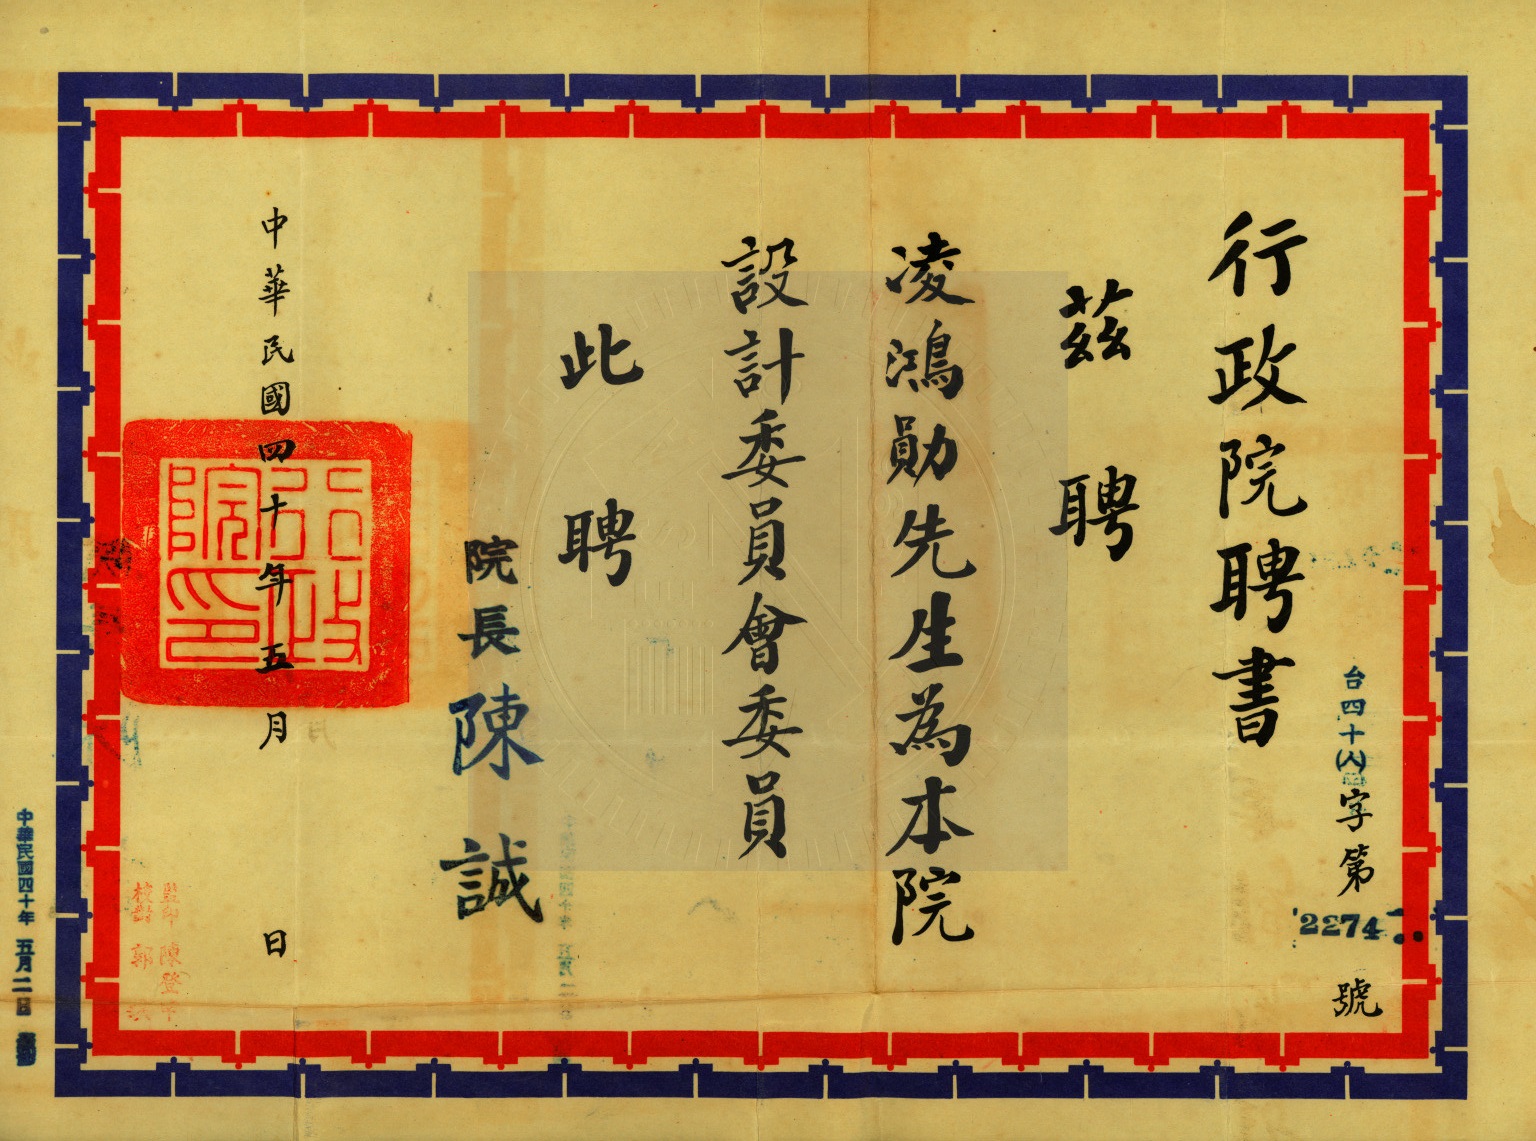 行政院聘書
台四十(人)字第2274號
茲聘
凌鴻勛先生為本院
設計委員會委員
此聘
院長陳誠
中華民國四十年五月 日
行政院印
監印 陳登
校對 郭
中華民國四十年 五月二日